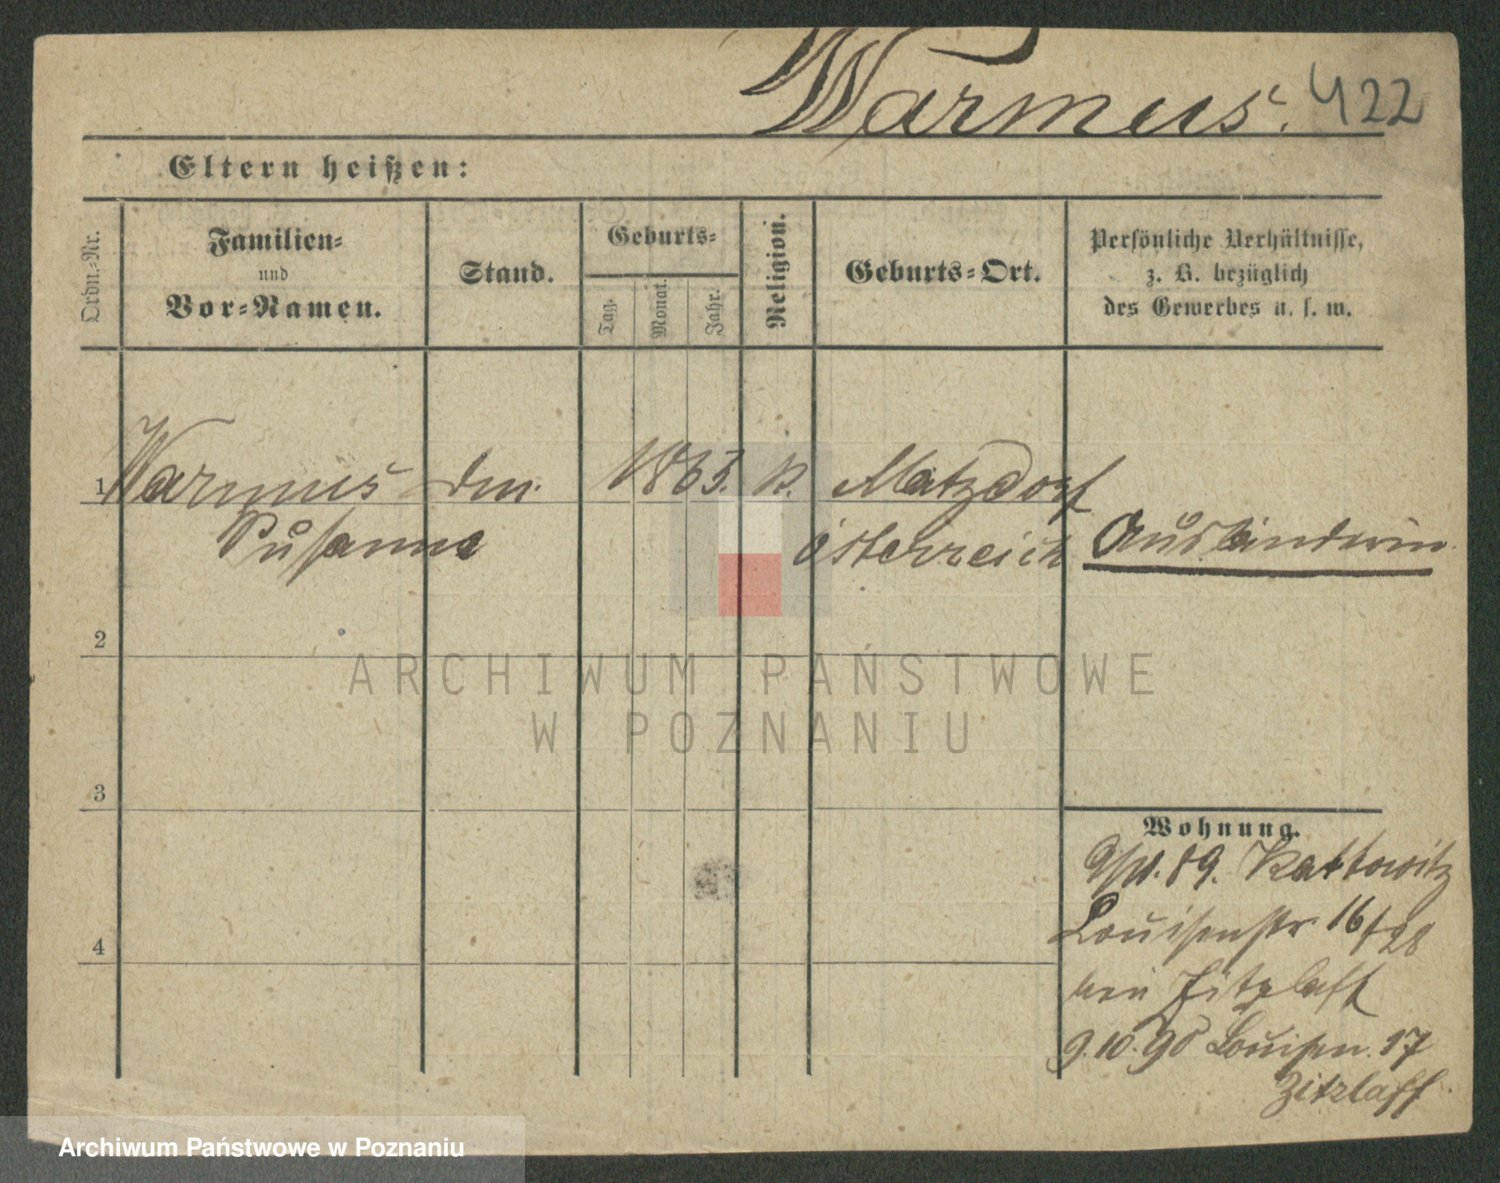 Warmus. 422
Eltern heißen:
Ordn.-Nr.
Familien-
und
Vor-Namen.
Stand.
Geburts-
Tag.
Monat.
Jahr.
Religion.
Geburts-Ort.
Persönliche Verhältnisse,
z. B. bezüglich
des Gewerbes u. s. w.
1 Warmus 1863. k. Matzdorf
Susanne Österreich Ausländerin
2
3
4
Wohnung.
89. Kattowitz
Louisenstr 16/
bei Zitzlaff
9.10.90 Louisen. 17
Zitzlaff
ARCHIWUM PAŃSTWOWE
W POZNANIU
Archiwum Państwowe w Poznaniu